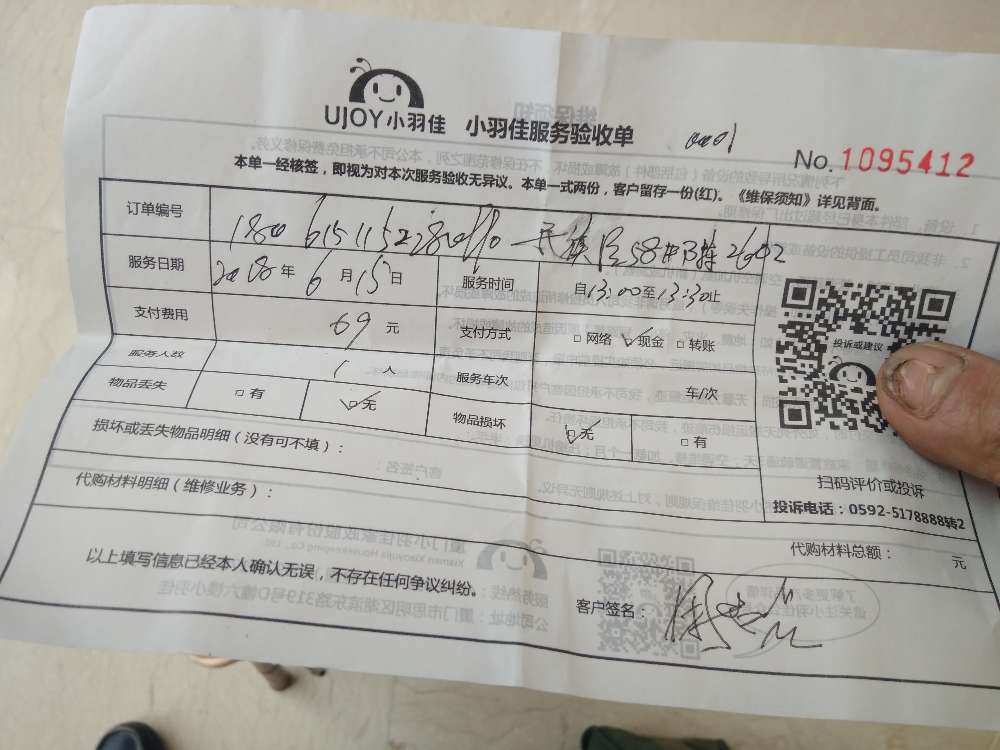 UJOY小羽佳 小羽佳服务验收单
No.1095412
本单一经核签，即视为对本次服务验收无异议。本单一式两份，客户留存一份(红)。《维保须知》详见背面。
订单编号
58#B栋2602
服务日期 2018年6月15日 服务时间 自13:00至13:30止
支付费用 69元 支付方式 □网络 ☑现金 □转账
投诉或建议
服务人数 1人 服务车次 车/次
物品丢失 □有 ☑无 物品损坏 ☑无 □有
损坏或丢失物品明细（没有可不填）：
扫码评价或投诉
代购材料明细（维修业务）：
投诉电话：0592-5178888转2
代购材料总额： 元
以上填写信息已经本人确认无误，不存在任何争议纠纷。
客户签名：